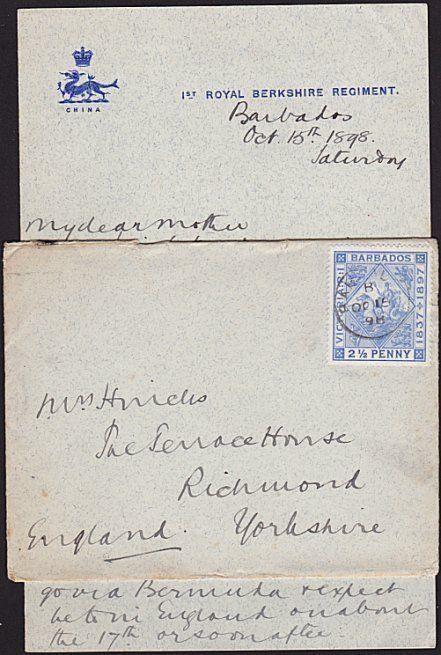 CHINA
1ST ROYAL BERKSHIRE REGIMENT.
Barbados
Oct. 15th 1898.
Saturday
My dear Mother
BARBADOS
VICTORIA R:I
1837 1897
2½ PENNY
OC 15
98
Mrs Hincks
The Terrace House
Richmond
Yorkshire
England
go via Bermuda & expect
to be in England on about
the 17th or soon after